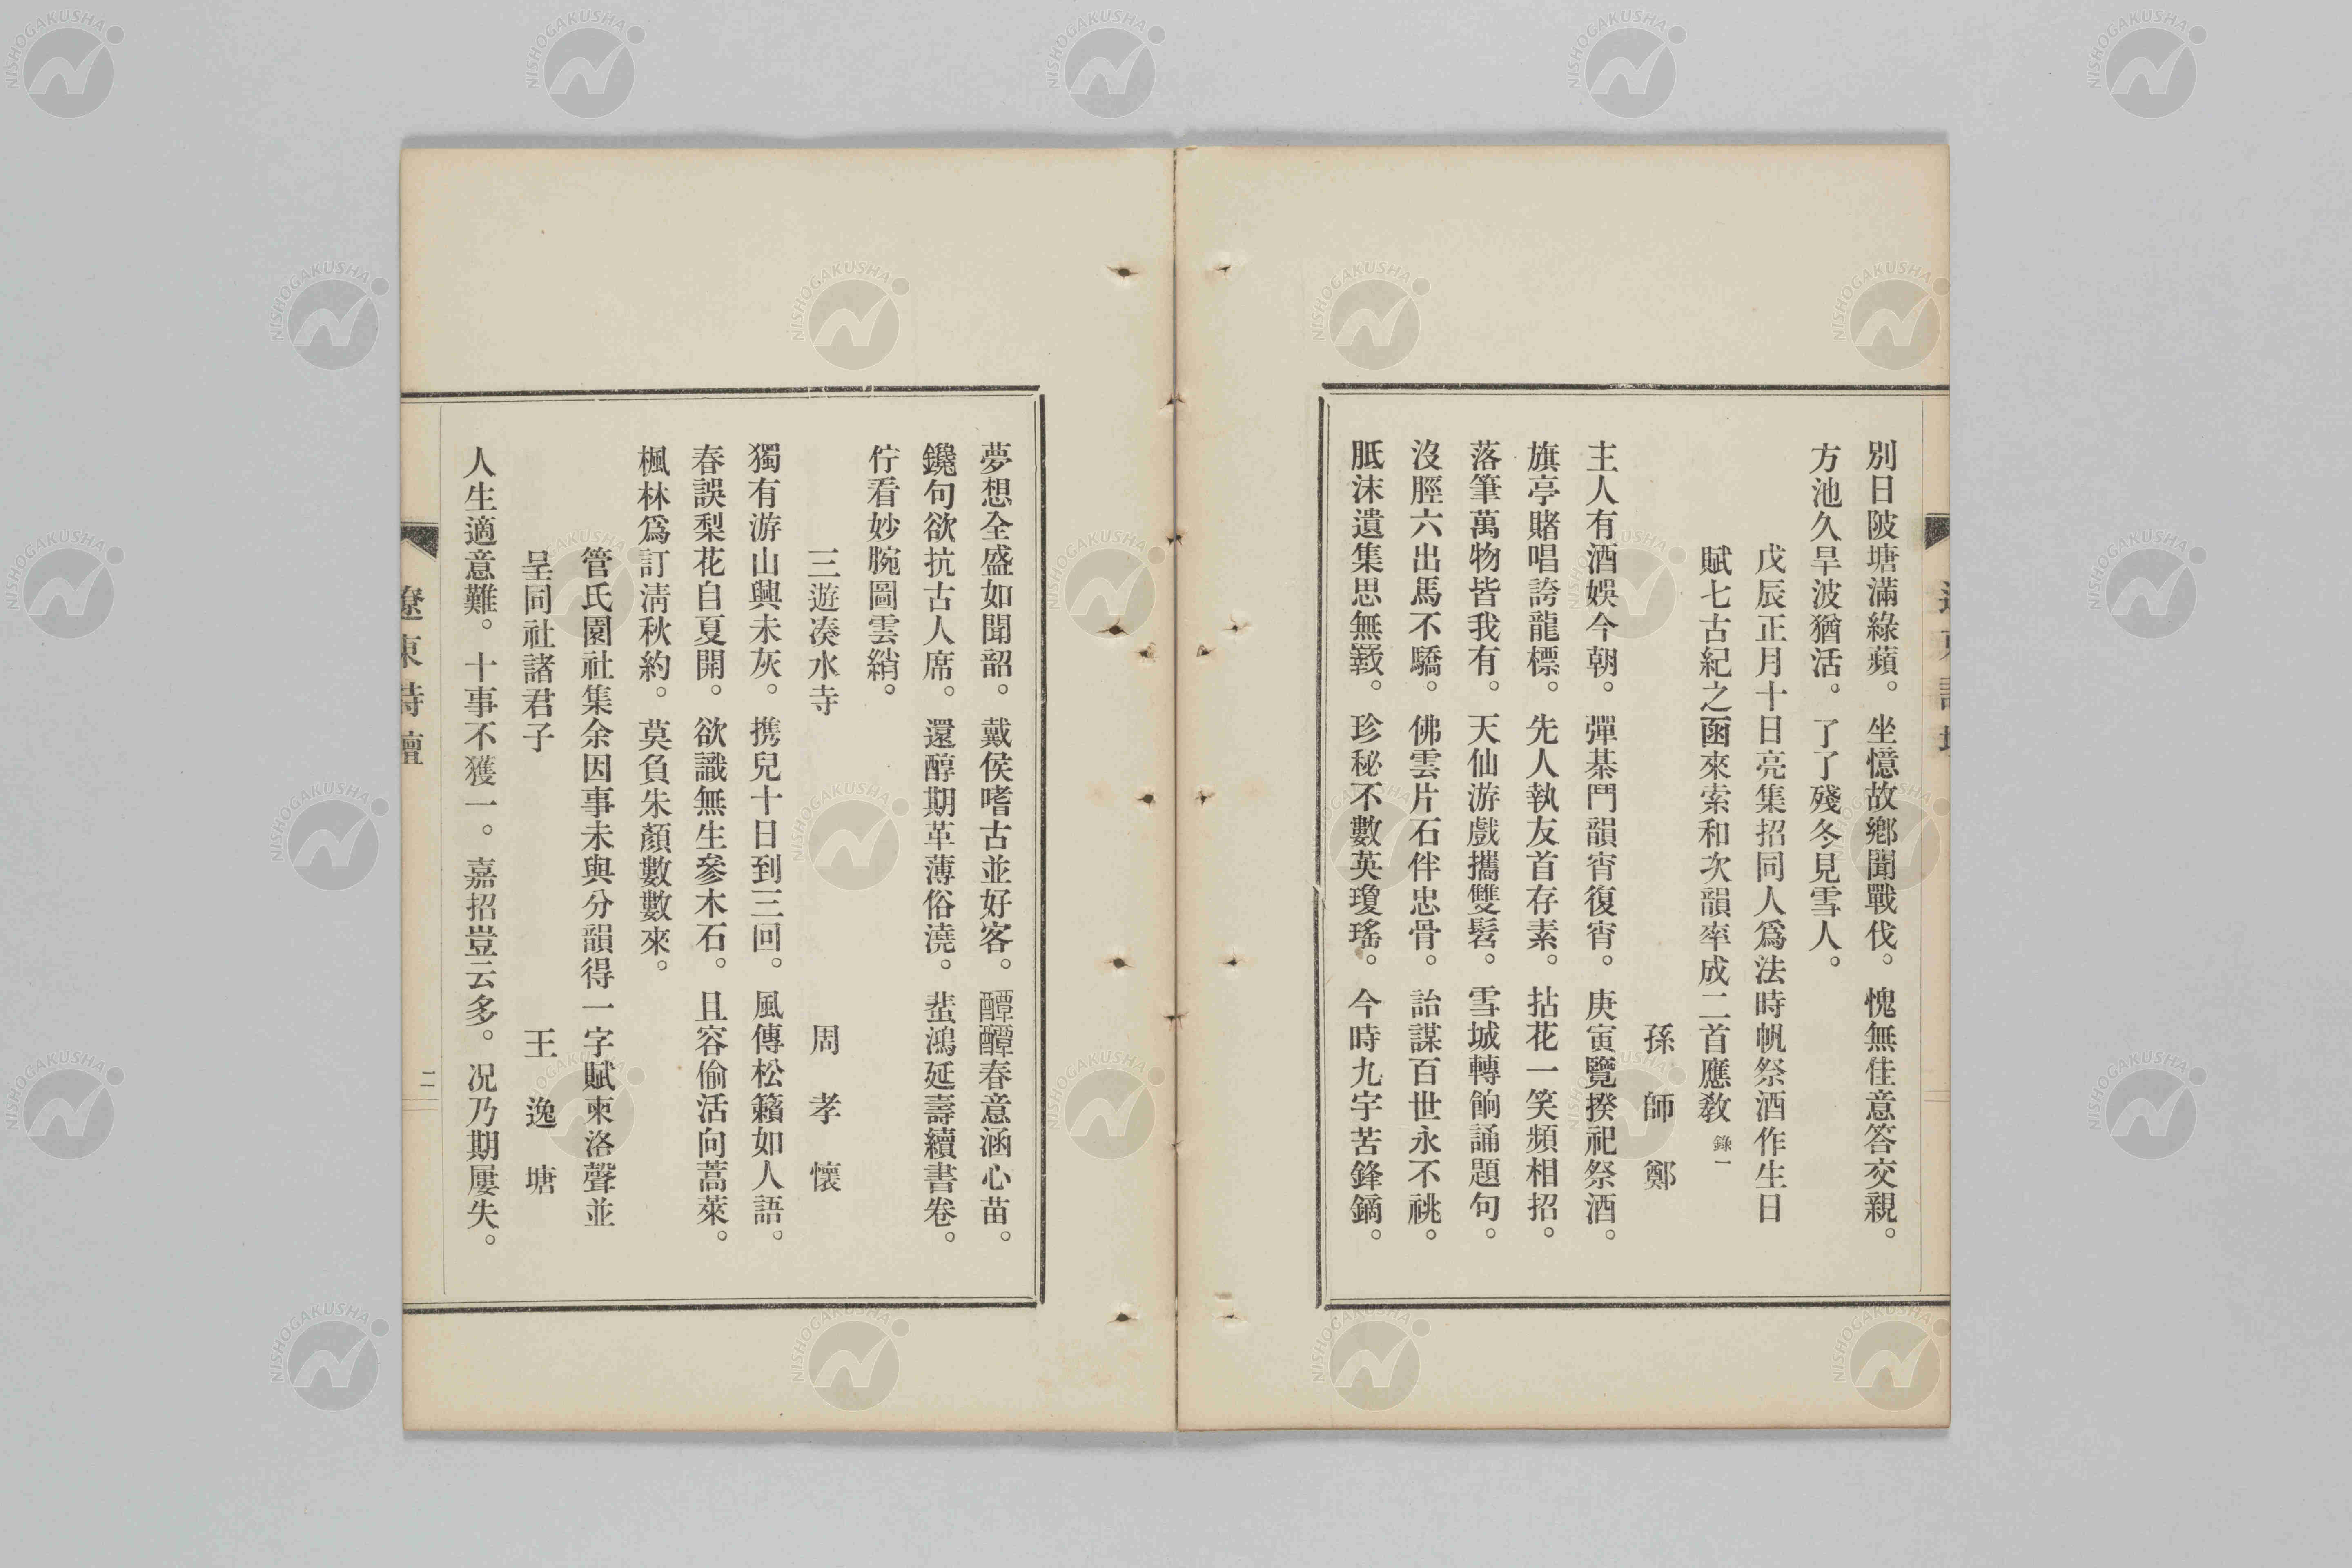 別日陂塘滿綠蘋。坐憶故鄕聞戰伐。愧無佳意答交親。
方池久旱波猶活。了了殘冬見雪人。
戊辰正月十日亮集招同人爲法時帆祭酒作生日
賦七古紀之函來索和次韻率成二首應敎 錄一
孫師鄭
主人有酒娛今朝。彈棊鬥韻宵復宵。庚寅覽揆祀祭酒。
旗亭賭唱誇龍標。先人執友首存素。拈花一笑頻相招。
落筆萬物皆我有。天仙游戲攜雙髫。雪城轉餉誦題句。
沒脛六出馬不驕。佛雲片石伴忠骨。詒謀百世永不祧。
胝沫遺集思無斁。珍秘不數英瓊瑤。今時九宇苦鋒鏑。
夢想全盛如聞韶。戴侯嗜古並好客。醰醰春意涵心苗。
鑱句欲抗古人席。還醇期革薄俗澆。蜚鴻延壽續書卷。
佇看妙腕圖雲綃。
三遊湊水寺
周孝懷
獨有游山興未灰。携兒十日到三回。風傳松籟如人語。
春誤梨花自夏開。欲識無生參木石。且容偷活向蒿萊。
楓林爲訂淸秋約。莫負朱顏數數來。
管氏園社集余因事未與分韻得一字賦柬洛聲並
呈同社諸君子
王逸塘
人生適意難。十事不獲一。嘉招豈云多。况乃期屢失。
遼東詩壇
二
NISHOGAKUSHA